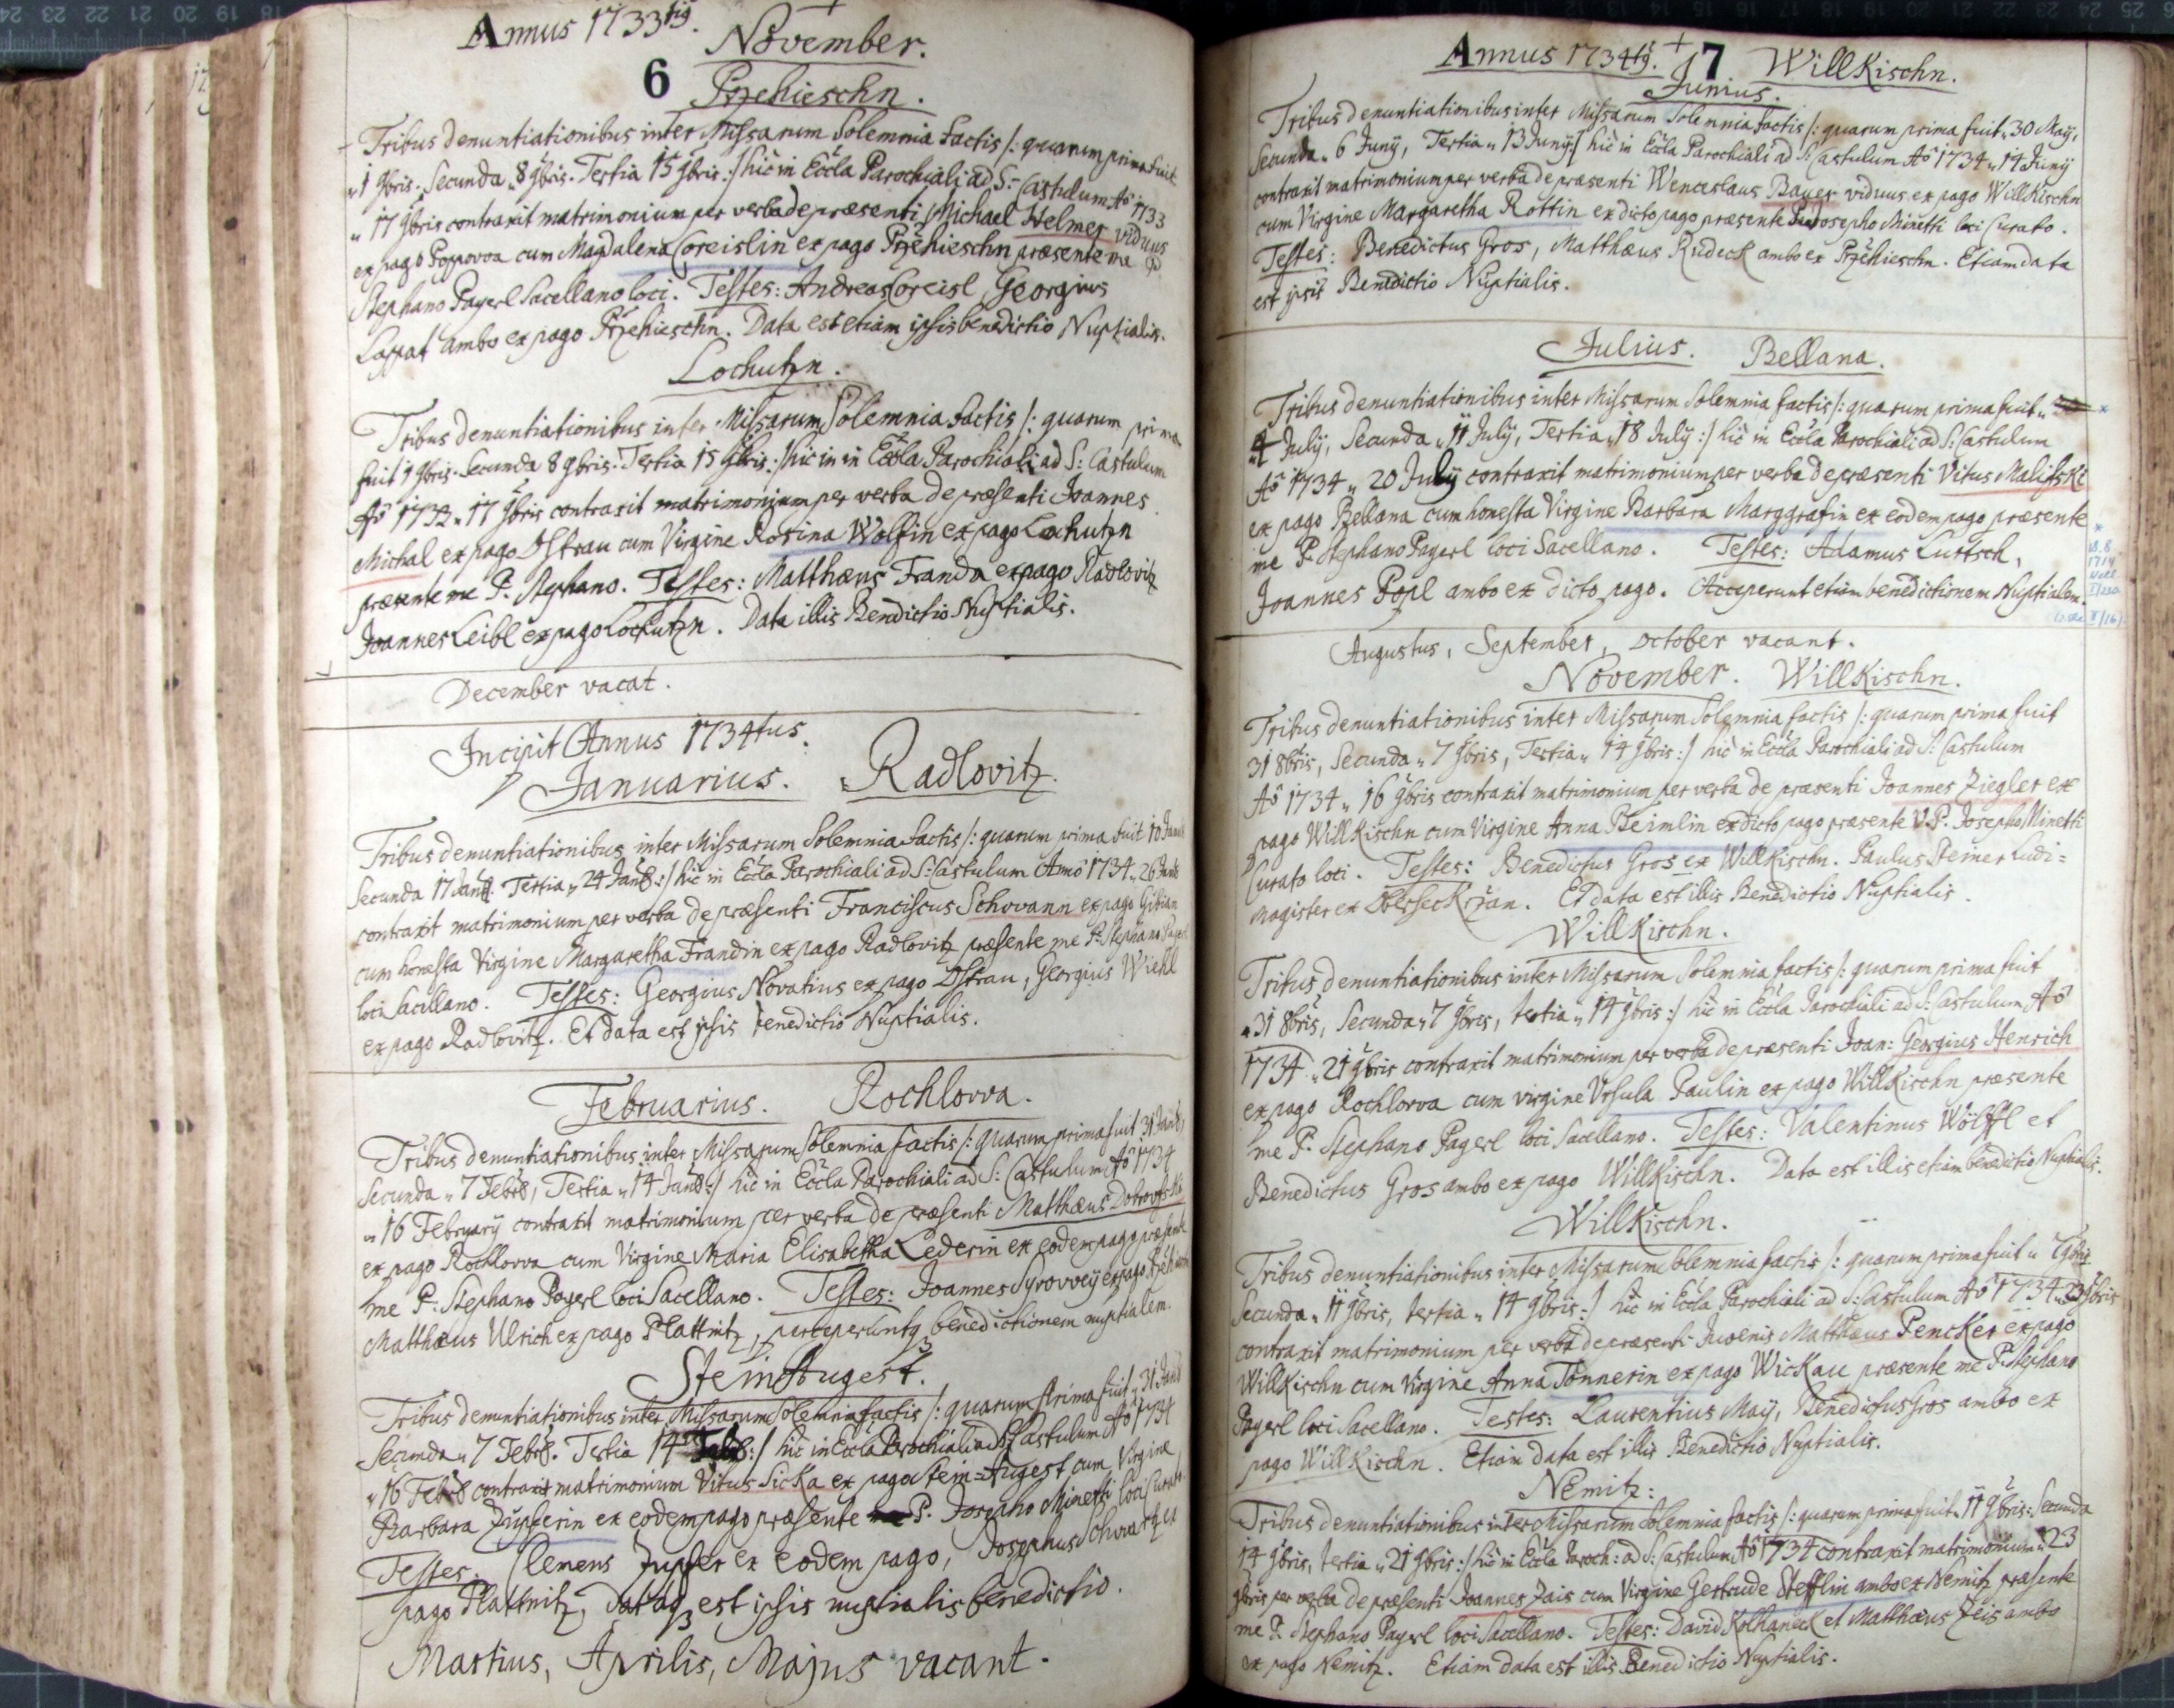 Annus 1733tig.
November.
6
Przehieschn.
Tribus denuntiationibus inter Missarum Solemnia factis /: quarum prima fuit
„1 9bris. Secunda „8 9bris. Tertia 15 9bris :/ hic in Eccla Parochiali ad S: Castulum Aö 1733
„17 9bris contraxit matrimonium per verba de præsenti Michael Helmer viduus
ex pago Poppowa cum Magdalena Coreislin ex pago Przehieschn præsente me P.
Stephano Payerl Sacellano loci. Testes: Andreas Coreisl, Georgius
Lappat ambo ex pago Przehieschn. Data est etiam ipsis benedictio Nuptialis.
Lochutzn.
Tribus denuntiationibus inter Missarum Solemnia factis /: quarum prima
fuit 1 9bris. Secunda 8 9bris. Tertia 15 9bris :/ hic in in Eccla Parochiali ad S: Castulum
Aö 1733 „17 9bris contraxit matrimonium per verba de præsenti Joannes
Michal ex pago Ostrau cum Virgine Rosina Wolfin ex pago Lochutzn
præsente me P. Stephano. Testes: Matthæus Franda ex pago Radlovitz
Joannes Leibl ex pago Lochutzn. Data illis Benedictio Nuptialis.
December vacat.
Incipit Annus 1734tus.
Januarius. Radlovitz.
Tribus denuntiationibus inter Missarum Solemnia factis /: quarum prima fuit 10
Secunda 17 Tertia „24 :/ hic in Eccla Parochiali ad S: Castulum Anno 1734 „26
contraxit matrimonium per verba de præsenti Franciscus Schovann ex pago Gibian
cum honesta Virgine Margaretha Frandin ex pago Radlovitz præsente me P. Stephano
loci Sacellano. Testes: Georgius Novatius ex pago Ostrau, Georgius Wiehl
ex pago Radlovitz. Et data est ipsis benedictio Nuptialis.
Februarius. Rochlowa.
Tribus denuntiationibus inter Missarum Solemnia factis /: quarum prima fuit 31
Secunda „7 Tertia „14 :/ hic in Eccla Parochiali ad S: Castulum Aö 1734
„16 February contraxit matrimonium per verba de præsenti Matthæus
ex pago Rochlowa cum Virgine Maria Elisabetha Lederin ex eodem pago præsente
me P: Stephano Payerl loci Sacellano. Testes: Joannes Syrovvey ex pago
Matthæus Ulrich ex pago Plattnitz, perceperuntq benedictionem nuptialem.
Stein Augest.
Tribus denuntiationibus inter Missarum Solemnia factis /: quarum prima fuit „31
Secunda „7 Tertia 14 :/ hic in Eccla Parochiali ad S: Castulum Aö 1734
„16 contraxit matrimonium Vitus Sicka ex pago Stein=Augest cum Virgine
Barbara Zupferin ex eodem pago præsente P. Josepho Minetti loci Curato
Testes. Clemens Zupfer ex eodem pago, Josephus Schwartz ex
pago Plattnitz, dataq est ipsis nuptialis benedictio.
Martius, Aprilis, Majus vacant.
Annus 1734tg. 7 Willkischn.
Junius.
Tribus denuntiationibus inter Missarum Solemnia factis /: quarum prima fuit „30 May,
Secunda „6 Juny, Tertia „13 Juny :/ hic in Eccla Parochiali ad S: Castulum Aö 1734 „14 Juny
contraxit matrimonium per verba de præsenti Wenceslaus Bayer viduus ex pago Willkischn
cum Virgine Margaretha Rottin ex dicto pago præsente Josepho Minetti loci Curato.
Testes: Benedictus Gros, Matthæus Rudeck ambo ex Przehieschn. Etiam data
est ipsis Benedictio Nuptialis.
Julius. Bellana.
Tribus denuntiationibus inter Missarum Solemnia factis /: quarum prima fuit „
„4 July, Secunda „11 July, Tertia „18 July :/ hic in Eccla Parochiali ad S: Castulum
Aö 1734 „20 July contraxit matrimonium per verba de præsenti Vitus Malisski
ex pago Bellana cum honesta Virgine Barbara Marggrafin ex eodem pago præsente
me P. Stephano Payerl loci Sacellano. Testes: Adamus Lurtsch,
Joannes Popl ambo ex dicto pago. Acceperunt etiam benedictionem Nuptialem.
Augustus, September, October vacant.
November. Willkischn.
Tribus denuntiationibus inter Missarum Solemnia factis /: quarum prima fuit
31 8bris, Secunda „7 9bris, Tertia „14 9bris :/ hic in Eccla Parochiali ad S: Castulum
Aö 1734 „16 9bris contraxit matrimonium per verba de præsenti Joannes Ziegler ex
pago Willkischn cum Virgine Anna Beimlin ex dicto pago præsente V.P. Josepho Minetti
Curato loci. Testes: Benedictus Gros ex Willkischn. Paulus Ludi=
magister ex Obersekrzan. Et data est illis Benedictio Nuptialis.
Willkischn.
Tribus denuntiationibus inter Missarum Solemnia factis /: quarum prima fuit
„31 8bris, Secunda „7 9bris, tertia „14 9bris :/ hic in Eccla Parochiali ad S: Castulum Aö
1734 „21 9bris contraxit matrimonium per verba de præsenti Joan: Georgius Henrich
ex pago Rochlowa cum virgine Ursula Paulin ex pago Willkischn præsente
me P. Stephano Payerl loci Sacellano. Testes: Valentinus Wölffl et
Benedictus Gros ambo ex pago Willkischn. Data est illis etiam benedictio Nuptialis.
Willkischn.
Tribus denuntiationibus inter Missarum Solemnia factis /: quarum prima fuit „7 9bris
Secunda „11 9bris, tertia „14 9bris :/ hic in Eccla Parochiali ad S: Castulum Aö 1734 „23 9bris
contraxit matrimonium per verba de præsenti Juvenis Matthæus Pencker ex pago
Willkischn cum Virgine Anna Tonnerin ex pago Wickau præsente me P. Stephano
Payerl loci Sacellano. Testes: Laurentius May, Benedictus Gros ambo ex
pago Willkischn. Etiam data est illis Benedictio Nuptialis.
Nemitz:
Tribus denuntiationibus inter Missarum Solemnia factis /: quarum prima fuit „11 9bris: Secunda
14 9bris, tertia „21 9bris :/ hic in Eccla Paroch: ad S: Castulum Aö 1734 contraxit matrimonium „23
9bris per verba de præsenti Joannes Zais cum Virgine Gertrude Stefflin ambo ex Nemitz præsente
me P. Stephano Payerl loci Sacellano. Testes: David Kolhaneck et Matthæus Zeis ambo
ex pago Nemitz. Etiam data est illis Benedictio Nuptialis.